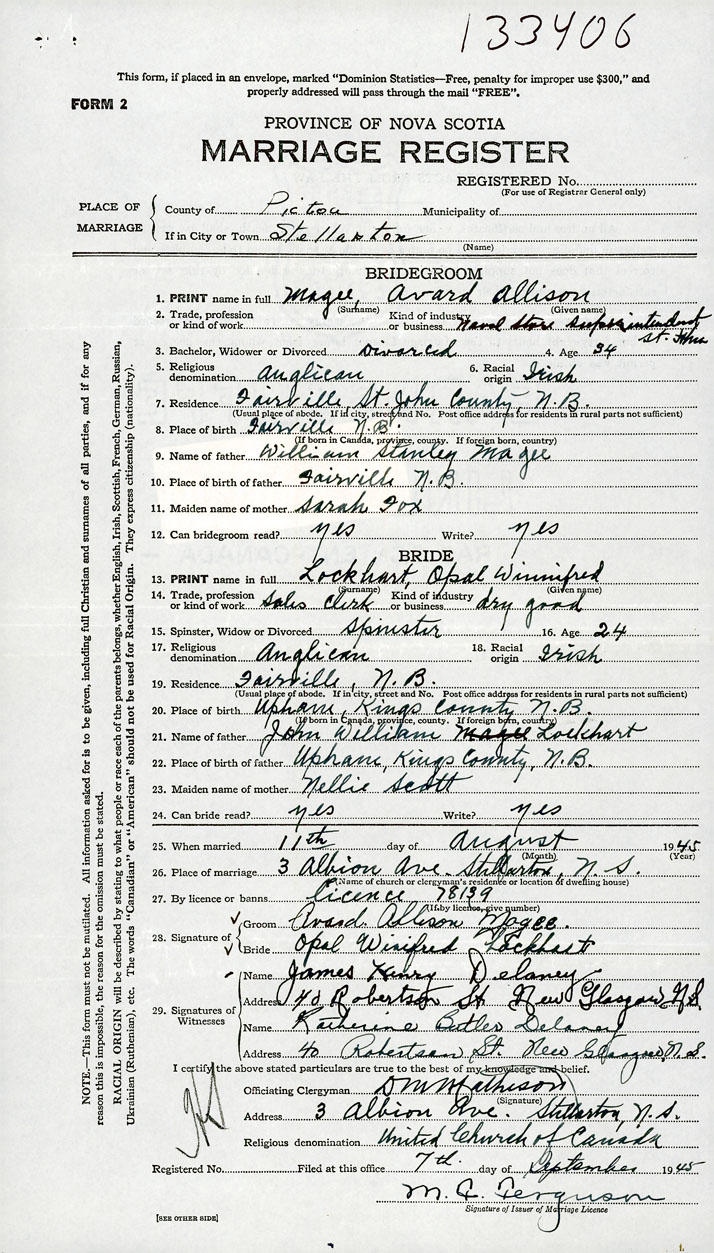 133406
This form, if placed in an envelope, marked "Dominion Statistics—Free, penalty for improper use $300," and
properly addressed will pass through the mail "FREE".
FORM 2
PROVINCE OF NOVA SCOTIA
MARRIAGE REGISTER
REGISTERED No.
(For use of Registrar General only)
PLACE OF MARRIAGE
County of Pictou Municipality of
If in City or Town Stellarton
(Name)
BRIDEGROOM
1. PRINT name in full Magee, Avard Allison
(Surname) (Given name)
2. Trade, profession or kind of work Kind of industry or business Naval Store Superintendent
St. John
3. Bachelor, Widower or Divorced Divorced 4. Age 34
5. Religious denomination Anglican 6. Racial origin Irish
7. Residence Fairville St. John County, N.B.
(Usual place of abode. If in city, street and No. Post office address for residents in rural parts not sufficient)
8. Place of birth Fairville N.B.
(If born in Canada, province, county. If foreign born, country)
9. Name of father William Stanley Magee
10. Place of birth of father Fairville N.B.
11. Maiden name of mother Sarah Fox
12. Can bridegroom read? yes Write? yes
BRIDE
13. PRINT name in full Lockhart, Opal Winnifred
(Surname) (Given name)
14. Trade, profession or kind of work Sales Clerk Kind of industry or business dry good
15. Spinster, Widow or Divorced Spinster 16. Age 24
17. Religious denomination Anglican 18. Racial origin Irish
19. Residence Fairville, N.B.
(Usual place of abode. If in city, street and No. Post office address for residents in rural parts not sufficient)
20. Place of birth Upham, Kings County N.B.
(If born in Canada, province, county. If foreign born, country)
21. Name of father John William Magee Lockhart
22. Place of birth of father Upham, Kings County, N.B.
23. Maiden name of mother Nellie Scott
24. Can bride read? yes Write? yes
25. When married 11th day of August 1945
(Month) (Year)
26. Place of marriage 3 Albion Ave. Stellarton, N.S.
(Name of church or clergyman's residence or location of dwelling house)
27. By licence or banns licence 78139
(If by licence, give number)
28. Signature of
Groom Avard Allison Magee.
Bride Opal Winifred Lockhart
29. Signatures of Witnesses
Name James Henry Delaney
Address 40 Robertson St New Glasgow N.S.
Name Katherine Butler Delaney
Address 40 Robertson St. New Glasgow, N.S.
I certify the above stated particulars are true to the best of my knowledge and belief.
Officiating Clergyman D M Mathieson
(Signature)
Address 3 Albion Ave. Stellarton, N.S.
Religious denomination United Church of Canada
Registered No. Filed at this office 7th. day of September 1945
M. J. Ferguson
Signature of Issuer of Marriage Licence
[SEE OTHER SIDE]
NOTE.—This form must not be mutilated. All information asked for is to be given, including full Christian and surnames of all parties, and if for any
reason this is impossible, the reason for the omission must be stated.
RACIAL ORIGIN will be described by stating to what people or race each of the parents belongs, whether English, Irish, Scottish, French, German, Russian,
Ukrainian (Ruthenian), etc. The words "Canadian" or "American" should not be used for Racial Origin. They express citizenship (nationality).